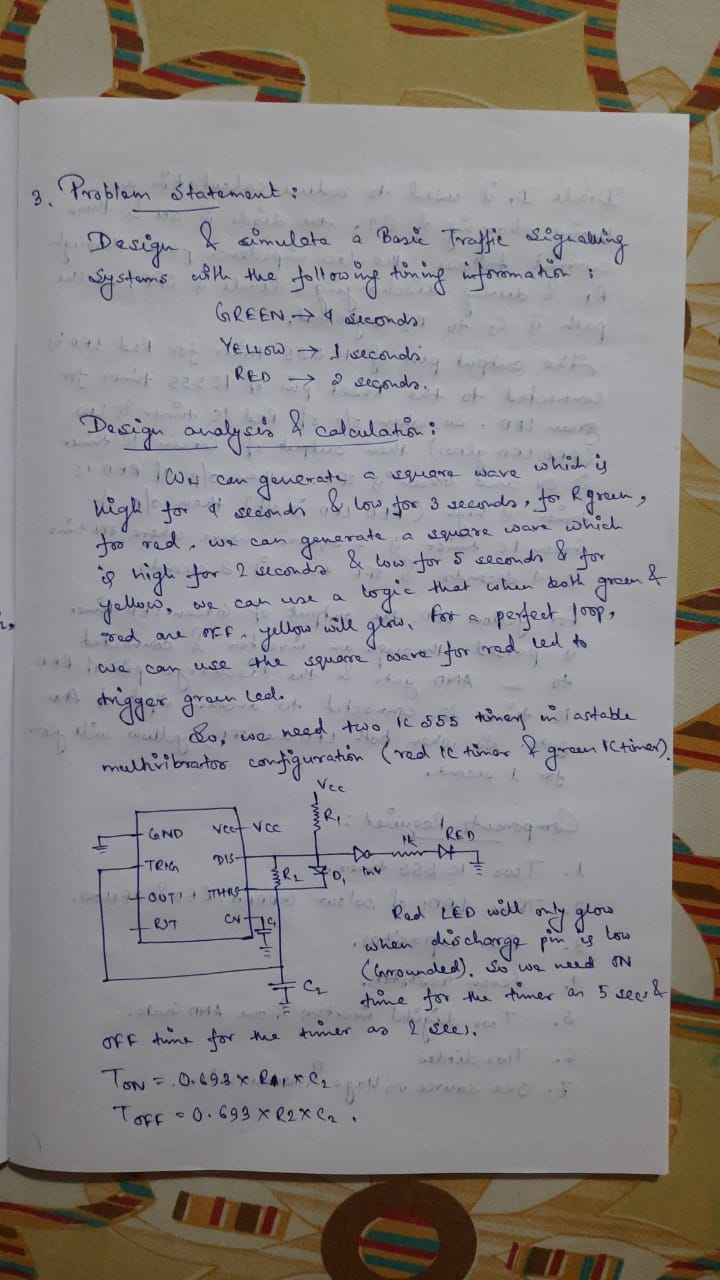 3. Problem Statement :
Design & simulate a Basic Traffic Signalling
Systems with the following timing information :
GREEN → 4 seconds.
YELLOW → 1 seconds
RED → 2 seconds.
Design analysis & calculation :
We can generate a square wave which is
high for 4 seconds & low for 3 seconds, for green,
for red, we can generate a square wave which
is high for 2 seconds & low for 5 seconds & for
yellow, we can use a logic that when both green &
red are OFF, yellow will glow. For a perfect loop,
we can use the square wave for red led to
trigger green led.
So, we need two IC 555 timers in astable
multivibrator configuration (red IC timer & green IC timer).
Vcc
R1
GND Vcc Vcc
1K RED
TRIG DIS
R2 D1 inv
OUT THRS
RST CV C1
C2
Red LED will only glow
when discharge pin is low
(Grounded). So we need ON
time for the timer as 5 secs &
OFF time for the timer as 2 secs.
TON = 0.693 x RA1 x C2
TOFF = 0.693 x R2 x C2 .